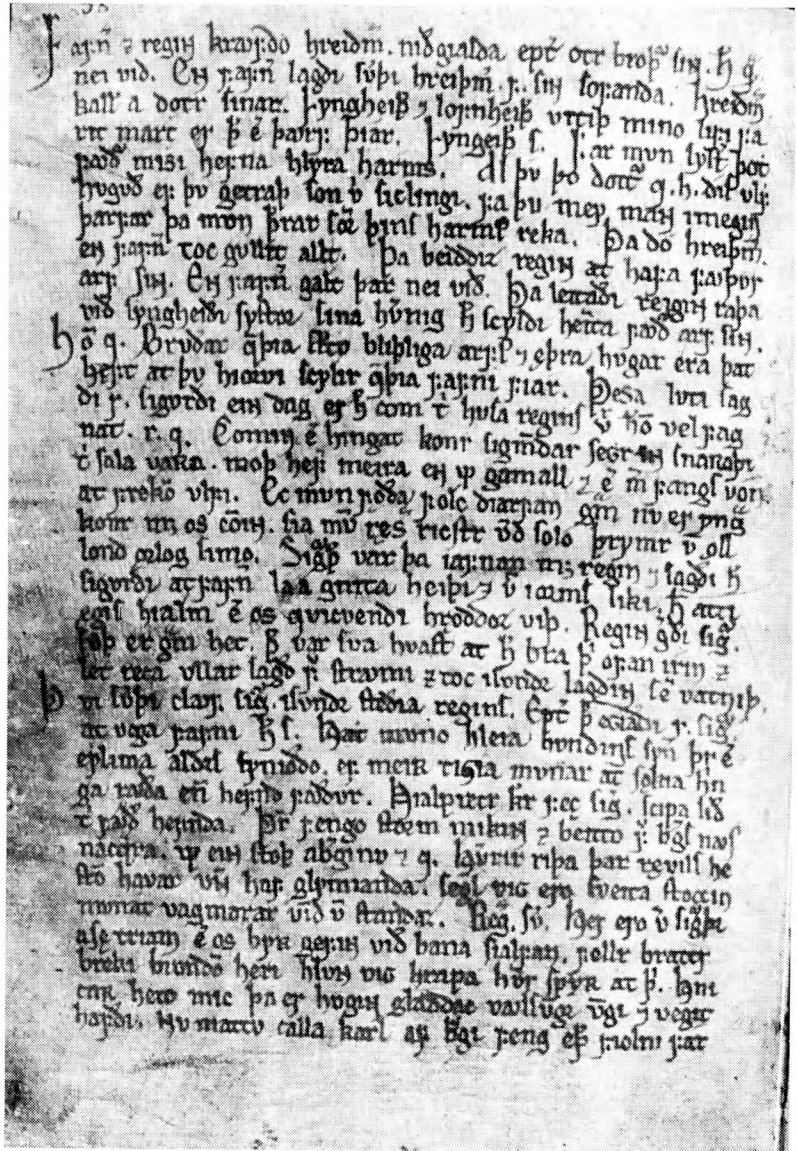 Fafn̄ ⁊ regin kravfdo hreiðm̄. niðgialda ept͛ otr broþ͛ sin. h̄ q̄
nei við. En fafn̄ lagdi sv̓þi hreiþm̄. f. sin sofanda. hreiðm̄
kall a dotr sinar. Lyngheiþ ⁊ lofnheiþ vitiþ mino lifi fa
rit mart er þ̄ ē þavrf þiar. Lyngeiþ s. Far mvn syst͛ þot
favð͛ misi hefna hlyra harms. Al þv þo dott͛ q. h. dis vlf
hvgvð ef þv getraþ son v̓ siclingi. fa þv mey mann imegin
þarfar þa mvn þrar sōr þins harms reka. Þa do hreiþm̄.
en fafn̄ toc gvllit allt. Þa beiddiz regin at hafa favþvr
arf sin. En fafn̄ galt þar nei við. Þa leitaði reigin raþa
við lyngheiði systor sina hv̓nig h̄ scyldi heīta favð͛ arf sin.
hō q. Brvðar q̄þia sc̄to bliþliga arfs ⁊ eþra hvgar era þat
heft at þv hiorvi scylir q̄þia fafni fiar. Þesa lvti sag
di r. sigvrdi ein dag er h̄ com t̓ hvsa regins v̓ hō vel fag
nat. r. q. Comin ē hingat konr sigm̄dar segr in snarraþi
t̓ sala vara. moþ hefi meira en mͣ gamall ⁊ ē m̄ fangs von.
at frekō vlfi. Ec mvn fǫða folc diarfan gm̄ nv er yng̓
konr m̄ os cōin. sia mv̄ ręs ricstr vnd solo þrymr v̄ oll
lond orlog simo. Sigþ͛ var þa iafnan m; regin ⁊ sagði h̄
sigvrdi at fafn̄ la a gnita heiþi ⁊ v̓ i orms liki. h̄ atti
egis hialm ē os qvicvendi hroddoz viþ. Regin g̓ði sig̓.
sv̓þ er gm̄ het. þ̄ var sva hvast at h̄ bra þ̓ ofan irin ⁊
let reca vllar lagd f̓ stravmi ⁊ toc isvndr lagdin sē vatniþ.
þvi sv̓þi clavf. sig̓. isvndr stedia regins. Ept͛ þ̄ eggiaði r. sig̓
at vega fafni h̄ s. Hat mvno hleia hvndings syn þr̄ ē
eylima aldrs synioðo. ef meir tigia mvnar at sǫkia hn
ga ravða en hefnd favðvr. Hialprecr kr̄ fec sig̓. scipa lið
t̓ favð͛ hefnda. Þr̄ fengo storm mikinn ⁊ beitto f̓ b̓gs navs
naccqva. mͣ ein stoþ ab̓gino ⁊ q. hv̓rir riþa þar revils he
stō havar vn̄ haf glymianda. segl vig ero sveita stoccin
mvnat vagmarar vind v̄ standaz. Reg. sv̓. Her ero v̓ sig̓þr
asę triam ē os byr gefinn við bana sialfan. fellr brattr
breki brvndō hęri hlvn vig hrapa hv̓r spyr at þ̓. Hni
car heto mic þa er hvgin gladdae vavlsvngr v̄gi ⁊ vegit
hafdi. nv mattv calla karl af b̓gi feng eþ̓ fiolni far